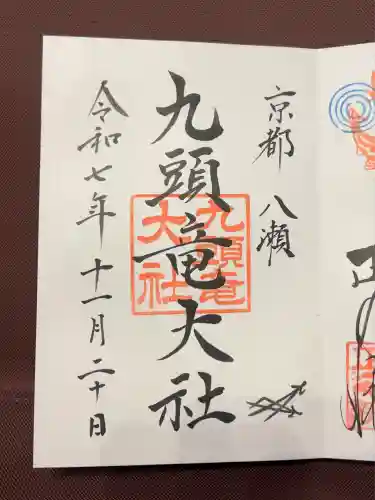 京都 八瀬
九頭竜大社
九頭竜
大社
令和七年 十一月二十日